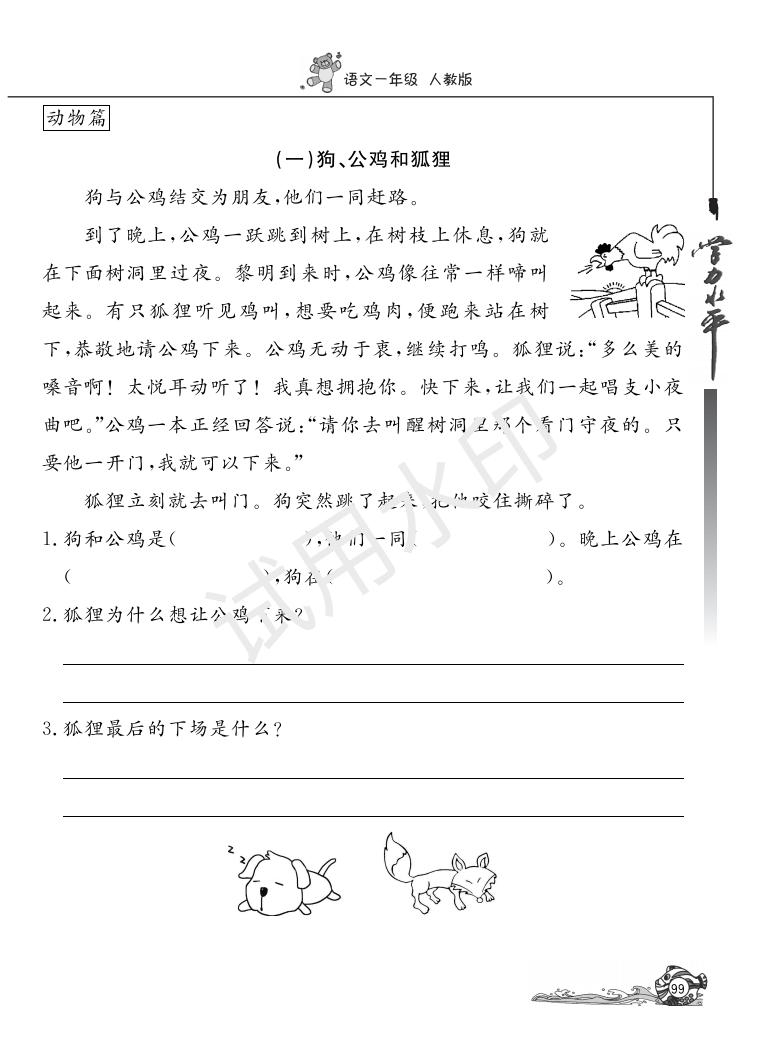 语文一年级 人教版
动物篇
(一)狗、公鸡和狐狸
狗与公鸡结交为朋友,他们一同赶路。
到了晚上,公鸡一跃跳到树上,在树枝上休息,狗就
在下面树洞里过夜。黎明到来时,公鸡像往常一样啼叫
起来。有只狐狸听见鸡叫,想要吃鸡肉,便跑来站在树
下,恭敬地请公鸡下来。公鸡无动于衷,继续打鸣。狐狸说:“多么美的
嗓音啊!太悦耳动听了!我真想拥抱你。快下来,让我们一起唱支小夜
曲吧。”公鸡一本正经回答说:“请你去叫醒树洞里那个看门守夜的。只
要他一开门,我就可以下来。”
狐狸立刻就去叫门。狗突然跳了起来,把他咬住撕碎了。
1.狗和公鸡是(            ),他们一同(            )。晚上公鸡在
(            ),狗在(            )。
2.狐狸为什么想让公鸡下来?
3.狐狸最后的下场是什么?
z
z
99
学力水平
试用水印